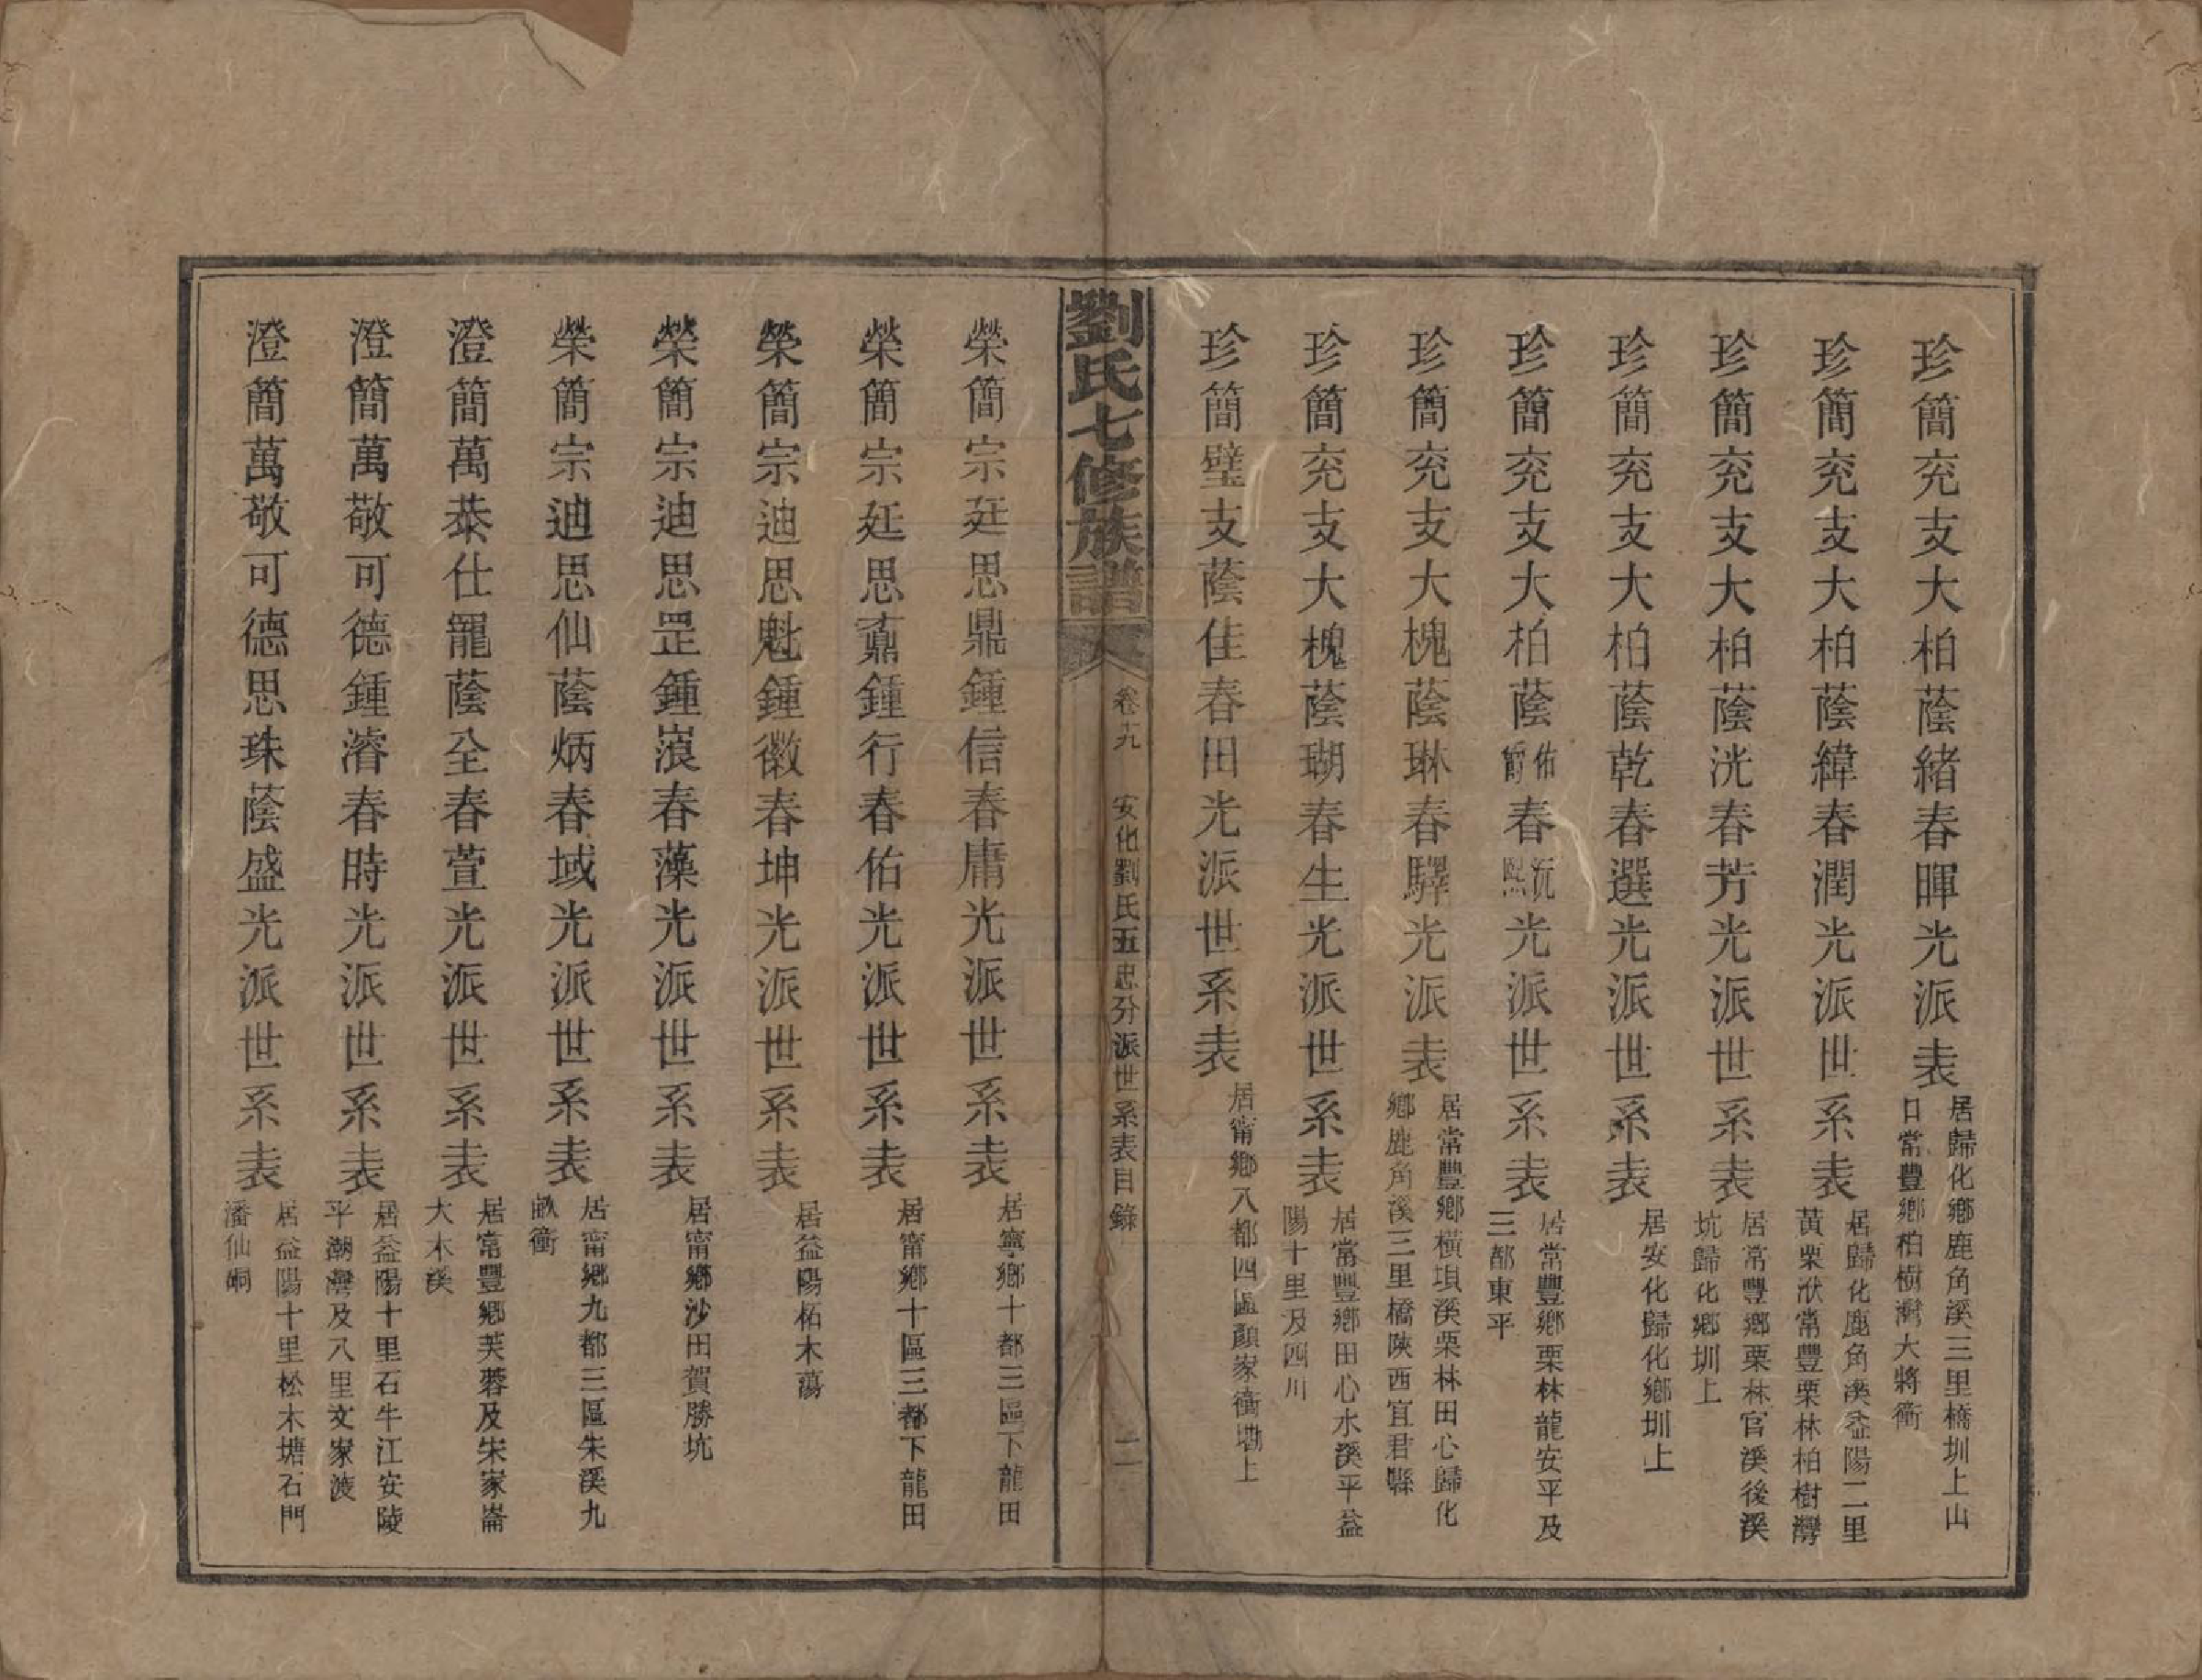 珍簡充支大柏蔭緒春暉光派表 居歸化鄉鹿角溪三里橋圳上山口常豐鄉柏樹灣大將衝
珍簡充支大柏蔭緯春潤光世系表 居歸化鹿角溪益陽二里黃栗洑常豐栗林柏樹灣
珍簡充支大柏蔭洸春芳光派世系表 居常豐鄉栗林官溪後溪坑歸化鄉圳上
珍簡充支大柏蔭乾春選光派世系表 居安化歸化鄉圳上
珍簡充支大柏蔭佑爵春沅熙光派世系表 居常豐鄉栗林龍安平及三都東平
珍簡充支大槐蔭琳春驛光派表 居常豐鄉橫埧溪栗林田心歸化鄉鹿角溪三里橋陝西宜君縣
珍簡充支大槐蔭瑚春生光派世系表 居常豐鄉田心水溪平益陽十里及四川
珍簡璧支蔭佳春田光派世系表 居甯鄉八都四區顏家衝塅上
劉氏七修族譜 卷九 安化劉氏五忠分派世系表目錄 二
榮簡宗廷思鼎鍾信春庸光派世系表 居寧鄉十都三區下龍田
榮簡宗廷思鼒鍾行春佑光派世系表 居甯鄉十區三都下龍田
榮簡宗迪思魁鍾徽春坤光派世系表 居益陽柘木蕩
榮簡宗迪思罡鍾崀春藻光派世系表 居甯鄉沙田賀勝坑
榮簡宗迪思仙蔭炳春域光派世系表 居甯鄉九都三區朱溪九畝衝
澄簡萬恭仕寵蔭全春萱光派世系表 居常豐鄉芙蓉及朱家崙大木溪
澄簡萬敬可德鍾濬春時光派世系表 居益陽十里石牛江安陵平潮灣及八里文家渡
澄簡萬敬可德思珠蔭盛光派世系表 居益陽十里松木塘石門潘仙峒